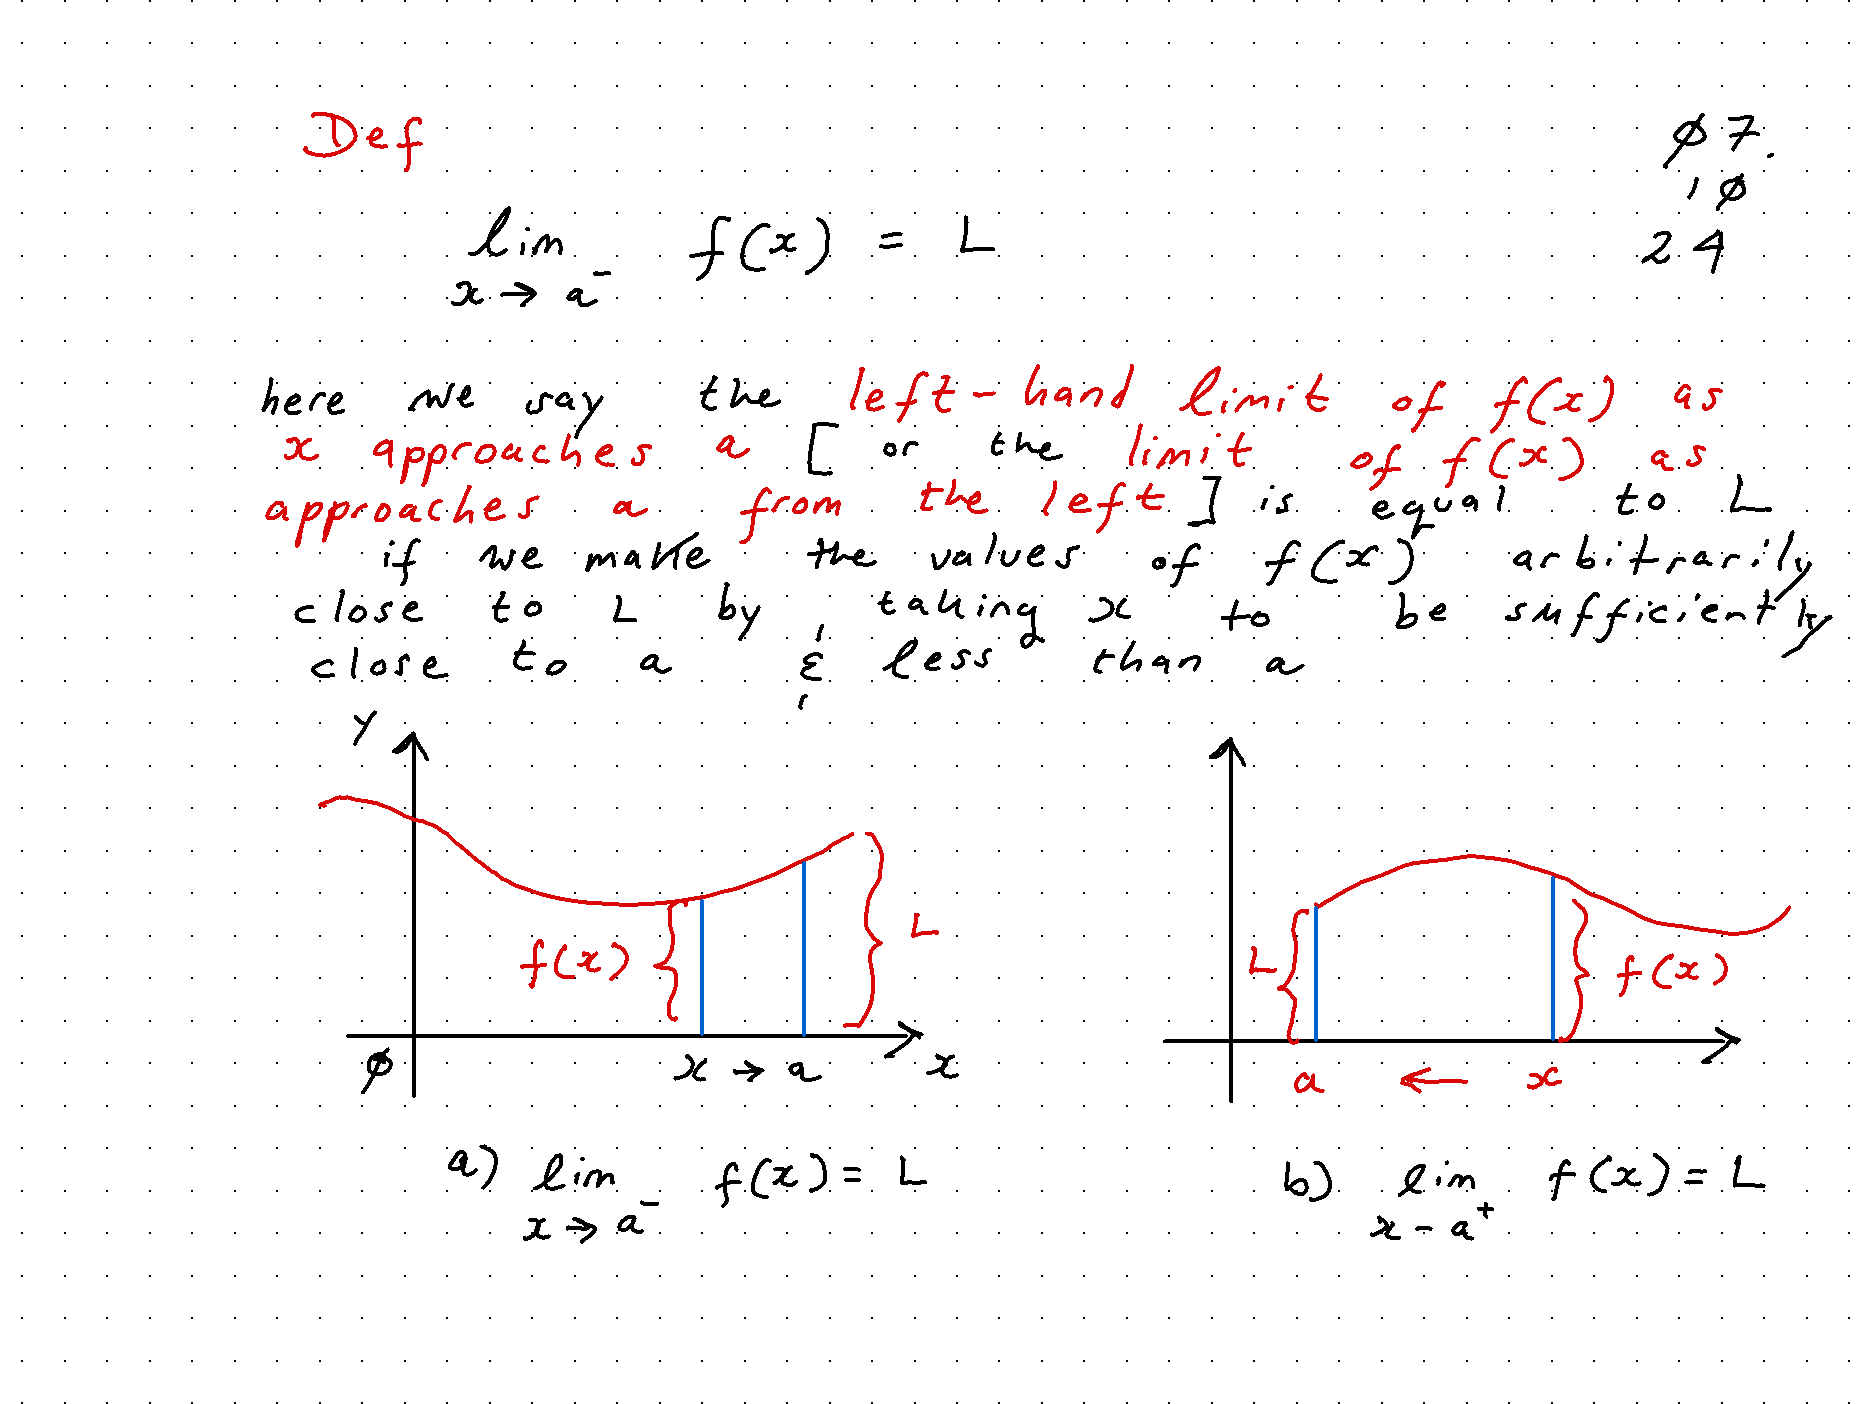 Def
07.
10
24
lim f(x) = L
x → a⁻
here we say the left-hand limit of f(x) as
x approaches a [ or the limit of f(x) as
approaches a from the left ] is equal to L
if we make the values of f(x) arbitrarily
close to L by taking x to be sufficiently
close to a & less than a
y
f(x)
L
0
x → a
x
L
f(x)
a ← x
a) lim f(x) = L
x → a⁻
b) lim f(x) = L
x - a⁺